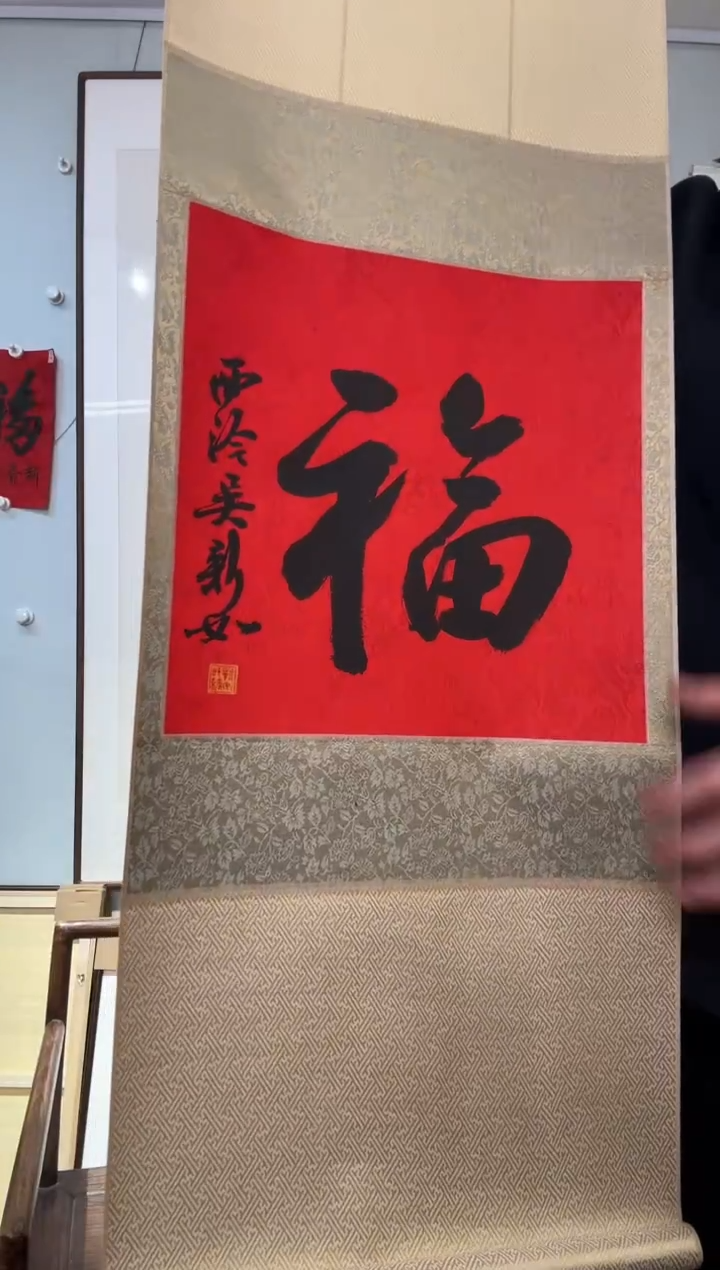 福
西泠吴新如
福